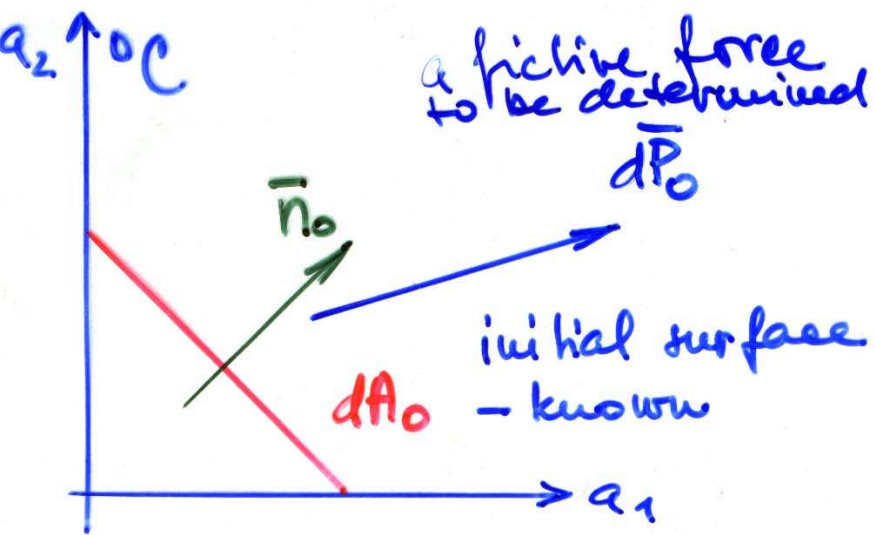 a₂ ⁰C
a fictive force
to be determined
dP̅₀
n̅₀
initial surface
dA₀ – known
a₁